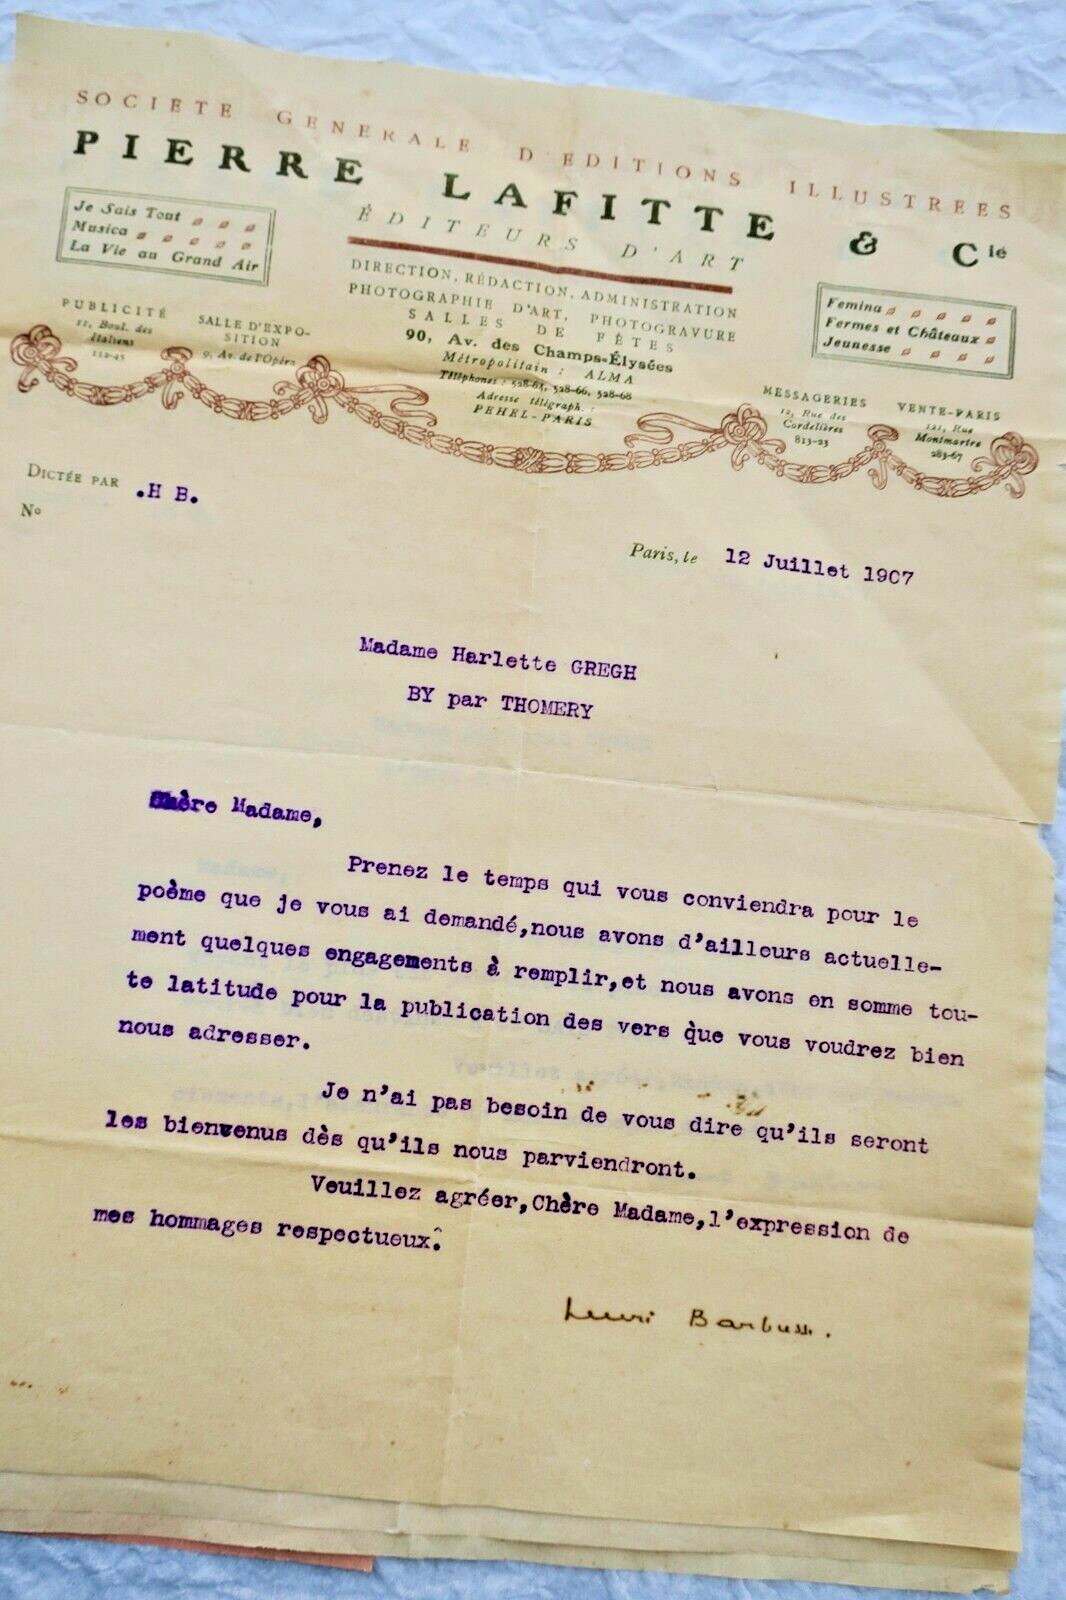 SOCIETE GENERALE D'EDITIONS ILLUSTREES
PIERRE LAFITTE & Cie
ÉDITEURS D'ART
Je Sais Tout
Musica
La Vie au Grand Air
DIRECTION, RÉDACTION, ADMINISTRATION
PHOTOGRAPHIE D'ART, PHOTOGRAVURE
SALLES DE FÊTES
90, Av. des Champs-Élysées
Métropolitain : ALMA
Téléphones : 528-64, 528-66, 528-68
Adresse télégraph. :
PEHEL-PARIS
Femina
Fermes et Châteaux
Jeunesse
PUBLICITÉ
11, Boul. des
Italiens
112-45
SALLE D'EXPO-
SITION
9, Av. de l'Opéra
MESSAGERIES
12, Rue des
Cordelières
813-23
VENTE-PARIS
121, Rue
Montmartre
283-67
DICTÉE PAR .H B.
No
Paris, le 12 Juillet 1907
Madame Harlette GREGH
BY par THOMERY
Chère Madame,
Prenez le temps qui vous conviendra pour le
poème que je vous ai demandé,nous avons d'ailleurs actuelle-
ment quelques engagements à remplir,et nous avons en somme tou-
te latitude pour la publication des vers que vous voudrez bien
nous adresser.
Je n'ai pas besoin de vous dire qu'ils seront
les bienvenus dès qu'ils nous parviendront.
Veuillez agréer,Chère Madame,l'expression de
mes hommages respectueux.
Henri Barbusse.